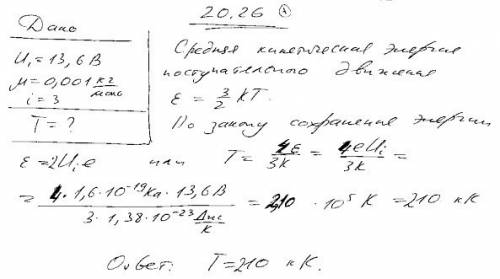 20.26
Дано
U₁ = 13,6 В
μ = 0,001 кг/моль
i = 3
T = ?
Средняя кинетическая энергия
поступательного движения
ε = 3/2 kT.
По закону сохранения энергии
ε = 2Uᵢe или T = 4ε/3k = 4eUᵢ/3k =
= 4·1,6·10⁻¹⁹Кл·13,6В / 3·1,38·10⁻²³ Дж/К = 2,10 · 10⁵ К = 210 кК
Ответ: T = 210 кК.